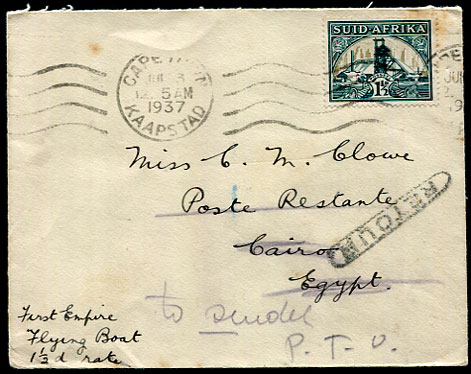 CAPE TOWN
JUL 3
12. 5 AM
1937
KAAPSTAD
SUID-AFRIKA
1½
Miss C. M. Clowe
Poste Restante
Cairo
Egypt.
RETOUR
to sender
P. T. O.
First Empire
Flying Boat
1½d rate